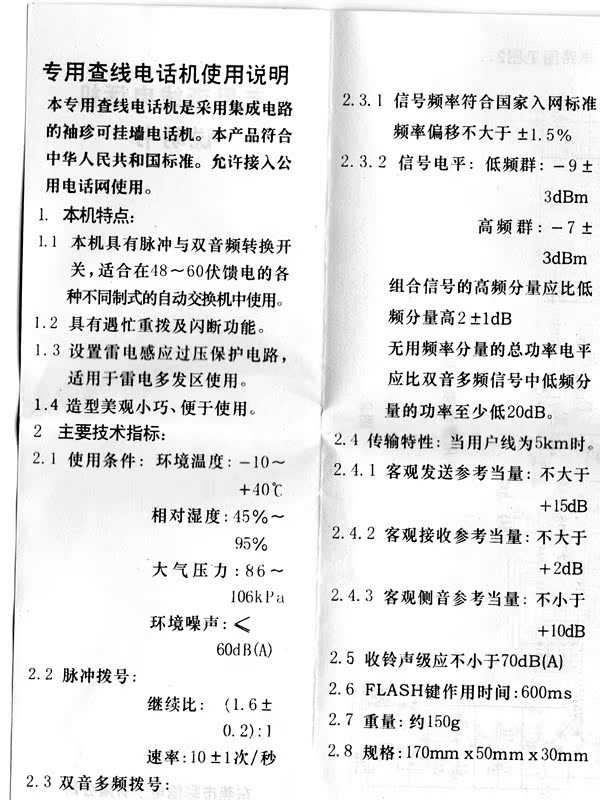 专用查线电话机使用说明
本专用查线电话机是采用集成电路
的袖珍可挂墙电话机。本产品符合
中华人民共和国标准。允许接入公
用电话网使用。
1. 本机特点:
1.1 本机具有脉冲与双音频转换开
关,适合在48～60伏馈电的各
种不同制式的自动交换机中使用。
1.2 具有遇忙重拨及闪断功能。
1.3 设置雷电感应过压保护电路,
适用于雷电多发区使用。
1.4 造型美观小巧、便于使用。
2 主要技术指标:
2.1 使用条件: 环境温度: -10～
+40℃
相对湿度: 45%～
95%
大气压力: 86～
106kPa
环境噪声: ≤
60dB(A)
2.2 脉冲拨号:
继续比: (1.6±
0.2):1
速率: 10±1次/秒
2.3 双音多频拨号:
2.3.1 信号频率符合国家入网标准
频率偏移不大于 ±1.5%
2.3.2 信号电平: 低频群: -9±
3dBm
高频群: -7±
3dBm
组合信号的高频分量应比低
频分量高2±1dB
无用频率分量的总功率电平
应比双音多频信号中低频分
量的功率至少低20dB。
2.4 传输特性: 当用户线为5km时。
2.4.1 客观发送参考当量: 不大于
+15dB
2.4.2 客观接收参考当量: 不大于
+2dB
2.4.3 客观侧音参考当量: 不小于
+10dB
2.5 收铃声级应不小于70dB(A)
2.6 FLASH键作用时间: 600ms
2.7 重量: 约150g
2.8 规格: 170mm x 50mm x 30mm